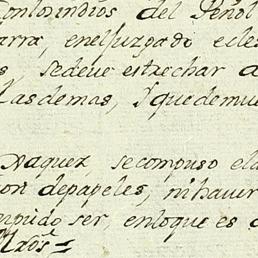 Con los indios del Peñol
arra, enel Juzgado ecles
s, sedeve estrechar a
Las demas, Y que demue
Naquez, secompuso el a
con depapeles, ni haver
mpido ser, enloque es